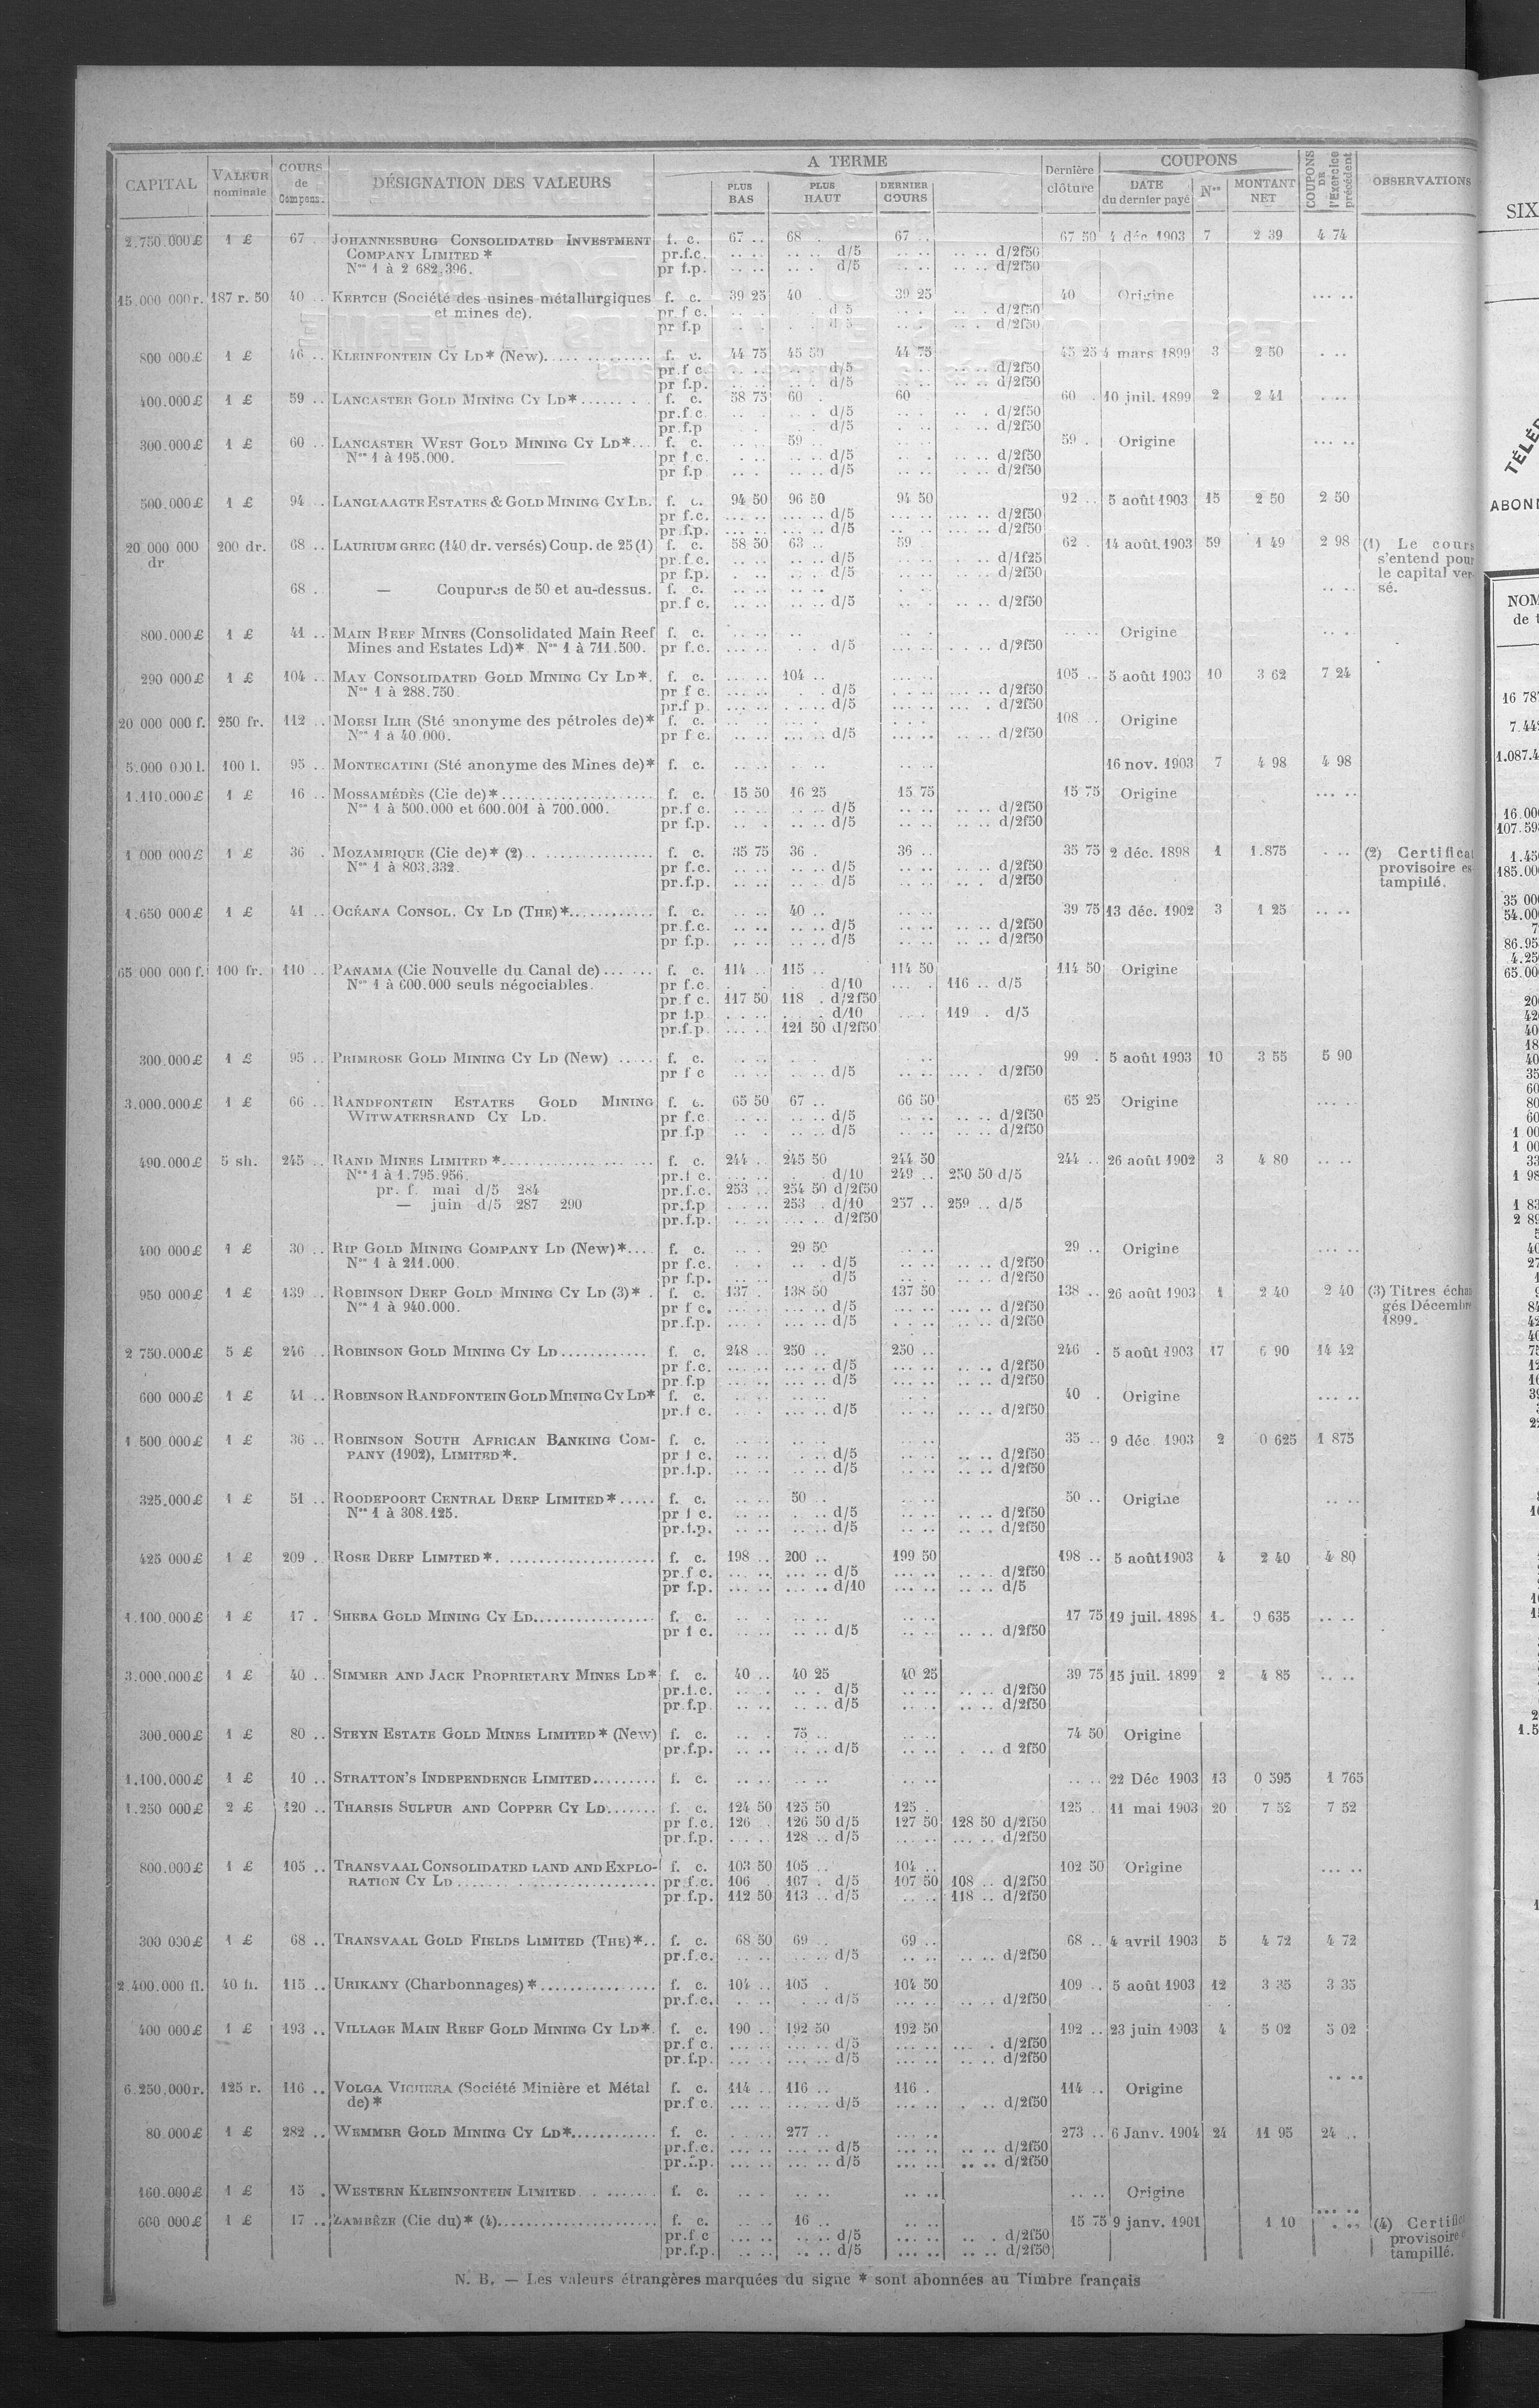 CAPITAL | VALEUR nominale | COURS de Compens. | DÉSIGNATION DES VALEURS | A TERME | PLUS BAS | PLUS HAUT | DERNIER COURS | Dernière clôture | COUPONS | DATE du dernier payé | Nos | MONTANT NET | COUPONS DE l'Exercice précédent | OBSERVATIONS
2.750.000£ 1 £ 67 . JOHANNESBURG CONSOLIDATED INVESTMENT f. c. 67 .. 68 . 67 .. 67 50 4 déc 1903 7 2 39 4 74
COMPANY LIMITED* pr.f.c. .. .. .. .. d/5 .. .. .. .. d/2f50
Nos 1 à 2 682.396. pr f.p. .. .. .. . d/5 .. .. .. .. d/2f50
15.000 000r. 187 r. 50 40 .. KERTCH (Société des usines métallurgiques f. c. 39 25 40 . 39 25 40 Origine ... ..
et mines de). pr f c. d 5 d/2f50
pr f.p d 5 d/2f50
800 000£ 1 £ 46 .. KLEINFONTEIN CY LD* (New). f. c. 44 75 45 50 44 75 45 25 4 mars 1899 3 2 50
pr.f c. d/5 d/2f50
pr f.p. d/5 d/2f50
400.000£ 1 £ 59 .. LANCASTER GOLD MINING CY LD* f. c. 58 75 60 . 60 60 . 10 juil. 1899 2 2 41
pr.f c. d/5 d/2f50
pr.f.p d/5 d/2f50
300.000£ 1 £ 60 .. LANCASTER WEST GOLD MINING CY LD* f. c. 59 .. 59 . Origine
Nos 1 à 195.000. pr f.c. d/5 d/2f50
pr f.p d/5 d/2f50
500.000£ 1 £ 94 .. LANGLAAGTE ESTATES & GOLD MINING CY LD. f. c. 94 50 96 50 94 50 92 .. 5 août 1903 15 2 50 2 50
pr f.c. d/5 d/2f50
pr.f.p. d/5 d/2f50
20 000 000 dr 200 dr. 68 .. LAURIUM GREC (140 dr. versés) Coup. de 25 (1) f. c. 58 50 63 .. 59 62 . 14 août. 1903 59 1 49 2 98 (1) Le cours
pr.f.c. d/5 d/1f25 s'entend pour
pr f.p. d/5 d/2f50 le capital ver-
68 . — Coupures de 50 et au-dessus. f. c. sé.
pr.f c. d/5 d/2f50
800.000£ 1 £ 41 .. MAIN REEF MINES (Consolidated Main Reef f. c. Origine
Mines and Estates Ld)* Nos 1 à 711.500. pr f.c. d/5 d/2f50
290 000£ 1 £ 104 .. MAY CONSOLIDATED GOLD MINING CY LD*. f. c. 104 .. 105 .. 5 août 1903 10 3 62 7 24
Nos 1 à 288.750. pr f c. d/5 d/2f50
pr.f p. d/5 d/2f50
20 000 000 f. 250 fr. 112 .. MORSI ILIR (Sté anonyme des pétroles de)* f. c. 108 .. Origine
Nos 1 à 40.000. pr f c. d/5 d/2f50
5.000 000 l. 100 l. 95 .. MONTECATINI (Sté anonyme des Mines de)* f. c. 16 nov. 1903 7 4 98 4 98
1.110.000£ 1 £ 16 .. MOSSAMÉDÈS (Cie de)* f. c. 15 50 16 25 15 75 15 75 Origine
Nos 1 à 500.000 et 600.001 à 700.000. pr.f c. d/5 d/2f50
pr f.p. d/5 d/2f50
1 000 000£ 1 £ 36 . MOZAMBIQUE (Cie de)* (2) f. c. 35 75 36 . 36 .. 35 75 2 déc. 1898 1 1.875 (2) Certificat
Nos 1 à 803.332. pr f.c. d/5 d/2f50 provisoire es
pr.f.p. d/5 d/2f50 tampillé.
1.650 000£ 1 £ 41 .. OCÉANA CONSOL. CY LD (THE)* f. c. 40 .. 39 75 13 déc. 1902 3 1 25
pr.f.c. d/5 d/2f50
pr f.p. d/5 d/2f50
65 000 000 f. 100 fr. 110 .. PANAMA (Cie Nouvelle du Canal de) f. c. 114 .. 115 .. 114 50 114 50 Origine
Nos 1 à 600.000 seuls négociables. pr f.c. d/10 116 .. d/5
pr.f c. 117 50 118 . d/2f50
pr f.p. d/10 119 . d/5
pr.f.p. 121 50 d/2f50
300.000£ 1 £ 95 .. PRIMROSE GOLD MINING CY LD (New) f. c. 99 . 5 août 1903 10 3 55 5 90
pr f c d/5 d/2f50
3.000.000£ 1 £ 66 .. RANDFONTEIN ESTATES GOLD MINING f. c. 65 50 67 .. 66 50 65 25 Origine
WITWATERSRAND CY LD. pr f.c. d/5 d/2f50
pr.f.p d/5 d/2f50
490.000£ 5 sh. 245 .. RAND MINES LIMITED* f. c. 244 . 245 50 244 50 244 .. 26 août 1902 3 4 80
Nos 1 à 1.795.956. pr.f c. d/10 249 .. 250 50 d/5
pr. f. mai d/5 284 pr.f.c. 253 .. 254 50 d/2f50
— juin d/5 287 290 pr.f.p 253 . d/10 257 .. 259 .. d/5
pr.f.p. d/2f50
400 000£ 1 £ 30 .. RIP GOLD MINING COMPANY LD (New)* f. c. 29 50 29 .. Origine
Nos 1 à 211.000. pr f.c. d/5 d/2f50
pr f.p. d/5 d/2f50
950 000£ 1 £ 139 .. ROBINSON DEEP GOLD MINING CY LD (3)* f. c. 137 . 138 50 137 50 138 .. 26 août 1903 1 2 40 2 40 (3) Titres échan
Nos 1 à 940.000. pr f c. d/5 d/2f50 gés Décembre
pr.f.p. d/5 d/2f50 1899.
2 750.000£ 5 £ 246 .. ROBINSON GOLD MINING CY LD f. c. 248 .. 250 .. 250 .. 246 . 5 août 1903 17 6 90 14 42
pr f.c. d/5 d/2f50
pr.f.p d/5 d/2f50
600 000£ 1 £ 41 .. ROBINSON RANDFONTEIN GOLD MINING CY LD* f. c. 40 . Origine
pr.f c. d/5 d/2f50
1 500 000£ 1 £ 36 .. ROBINSON SOUTH AFRICAN BANKING COM- f. c. 35 .. 9 déc 1903 2 0 625 1 875
PANY (1902), LIMITED*. pr f c. d/5 d/2f50
pr.f.p. d/5 d/2f50
325.000£ 1 £ 51 .. ROODEPOORT CENTRAL DEEP LIMITED* f. c. 50 .. 50 .. Origine
Nos 1 à 308.125. pr f c. d/5 d/2f50
pr.f.p. d/5 d/2f50
425 000£ 1 £ 209 .. ROSE DEEP LIMITED* f. c. 198 .. 200 .. 199 50 198 .. 5 août 1903 4 2 40 4 80
pr.f c. d/5 d/2f50
pr f.p. d/10 d/5
1.100.000£ 1 £ 17 . SHEBA GOLD MINING CY LD f. c. 17 75 19 juil. 1898 1. 0 635
pr f c. d/5 d/2f50
3.000.000£ 1 £ 40 .. SIMMER AND JACK PROPRIETARY MINES LD* f. c. 40 .. 40 25 40 25 39 75 15 juil. 1899 2 4 85
pr.f.c. d/5 d/2f50
pr.f.p d/5 d/2f50
300.000£ 1 £ 80 .. STEYN ESTATE GOLD MINES LIMITED* (New) f. c. 75 .. 74 50 Origine
pr.f.p. d/5 d 2f50
1.100.000£ 1 £ 10 .. STRATTON'S INDEPENDENCE LIMITED f. c. 22 Déc 1903 13 0 595 1 765
1.250 000£ 2 £ 120 .. THARSIS SULFUR AND COPPER CY LD f. c. 124 50 125 50 125 . 125 .. 11 mai 1903 20 7 52 7 52
pr f.c. 126 . 126 50 d/5 127 50 128 50 d/2f50
pr.f.p. 128 .. d/5 d/2f50
800.000£ 1 £ 105 .. TRANSVAAL CONSOLIDATED LAND AND EXPLO- f. c. 103 50 105 .. 104 .. 102 50 Origine
RATION CY LD pr.f.c. 106 . 107 . d/5 107 50 108 .. d/2f50
pr.f.p. 112 50 113 .. d/5 118 .. d/2f50
300 000£ 1 £ 68 .. TRANSVAAL GOLD FIELDS LIMITED (THE)* f. c. 68 50 69 .. 69 .. 68 .. 4 avril 1903 5 4 72 4 72
pr.f.c. d/5 d/2f50
2.400.000 fl. 40 fl. 115 .. URIKANY (Charbonnages)* f. c. 104 .. 105 104 50 109 .. 5 août 1903 12 3 35 3 35
pr.f.c. d/5 d/2f50
400 000£ 1 £ 193 .. VILLAGE MAIN REEF GOLD MINING CY LD*. f. c. 190 .. 192 50 192 50 192 .. 23 juin 1903 4 5 02 5 02
pr.f c. d/5 d/2f50
pr.f.p. d/5 d/2f50
6.250,000r. 125 r. 116 .. VOLGA VICHERA (Société Minière et Métal f. c. 114 .. 116 .. 116 . 114 .. Origine
de)* pr.f c. d/5 d/2f50
80.000£ 1 £ 282 .. WEMMER GOLD MINING CY LD* f. c. 277 .. 273 .. 6 Janv. 1904 24 11 95 24 ..
pr.f.c. d/5 d/2f50
pr.f.p. d/5 d/2f50
160.000£ 1 £ 15 . WESTERN KLEINFONTEIN LIMITED f. c. Origine
600 000£ 1 £ 17 .. ZAMBÈZE (Cie du)* (4) f. c. 16 .. 15 75 9 janv. 1901 1 10 (4) Certific
pr.f c d/5 d/2f50 provisoire
pr.f.p. d/5 d/2f50 tampillé.
N. B. — Les valeurs étrangères marquées du signe * sont abonnées au Timbre français
SIX
ABONN
NOM
de t